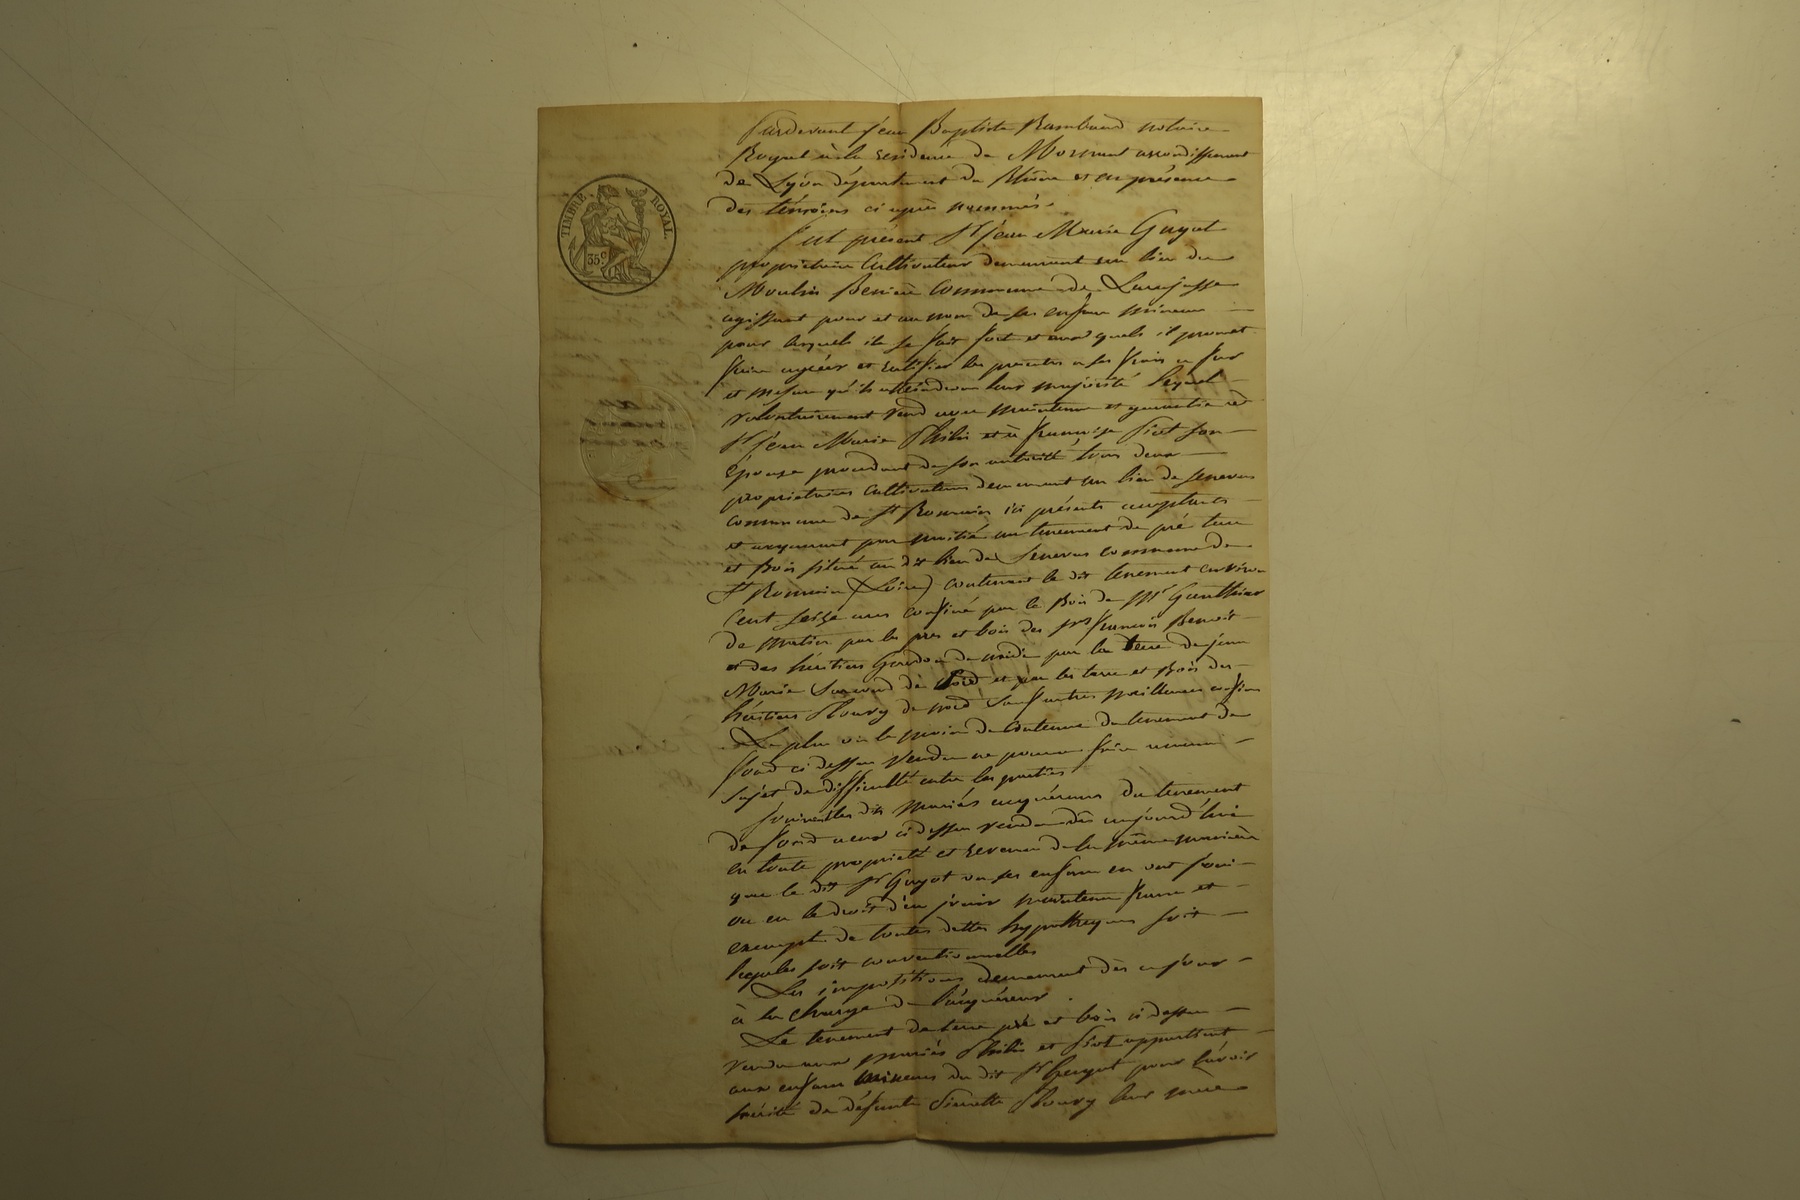 TIMBRE ROYAL.
35c
Pardevant Jean Baptiste Rambaud notaire
Royal à la residence de Mornant arrondissement
de Lyon département du Rhône et en présence
des témoins ci après nommés.
fut présent Sr Jean Marie Guyot
propriétaire cultivateur demeurant au lieu du
Moulin commune de Larajasse
agissant pour et au nom de ses enfans mineurs
pour lesquels il se fait fort et auxquels il promet
faire agréer et ratifier les presentes a ses frais a fur
et mesure qu'ils atteindront leur majorité lequel
volontairement vend avec maintenue et garantie à
Sr Jean Marie Philis et à françoise Piot son
épouse procedant de son autorité tous deux
propriétaires cultivateurs demeurant au lieu de Senevas
commune de St Romain ici présents acceptants
et acquerant par moitié un tenement de pré terre
et bois situé au dit lieu de Senevas commune de
St Romain (Loire) contenant le dit tenement environ
cent seize ares confiné par le bois de Mr Gauthier
de matin par les pres et bois des srs françois Benoit
et des héritiers de midi par la terre de jean
Marie de soir et par les terre et bois des
héritiers Floury de nord sauf autres meilleurs confins
Le plus ou le moins de contenue du tenement de
fond ci dessus vendu ne pourra faire aucun
sujet de difficulté entre les parties
Jouiront les dits mariés acquéreurs du tenement
de fond à eux ci dessus vendu dès aujourd'hui
en toute propriété et revenu de la même manière
que le dit Sr Guyot ou ses enfans en ont joui
ou eu le droit d'en jouir maintenu franc et
exempt de toutes dettes hypothèques soit
legales soit conventionnelles
Les impositions demeurent dès ce jour
à la charge de l'acquéreur.
Le tenement de terre pré et bois ci dessus
vendu aux mariés Philis et Piot appartient
aux enfans mineurs du dit Sr Guyot pour l'avoir
hérité de défunte Pierrette Floury leur mère